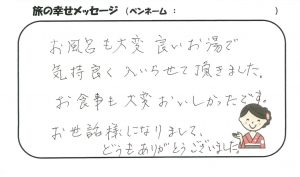 旅の幸せメッセージ (ペンネーム : )
お風呂も大変良いお湯で
気持良く入いらせて頂きました。
お食事も大変おいしかったです。
お世話様になりまして、
どうもありがとうございました